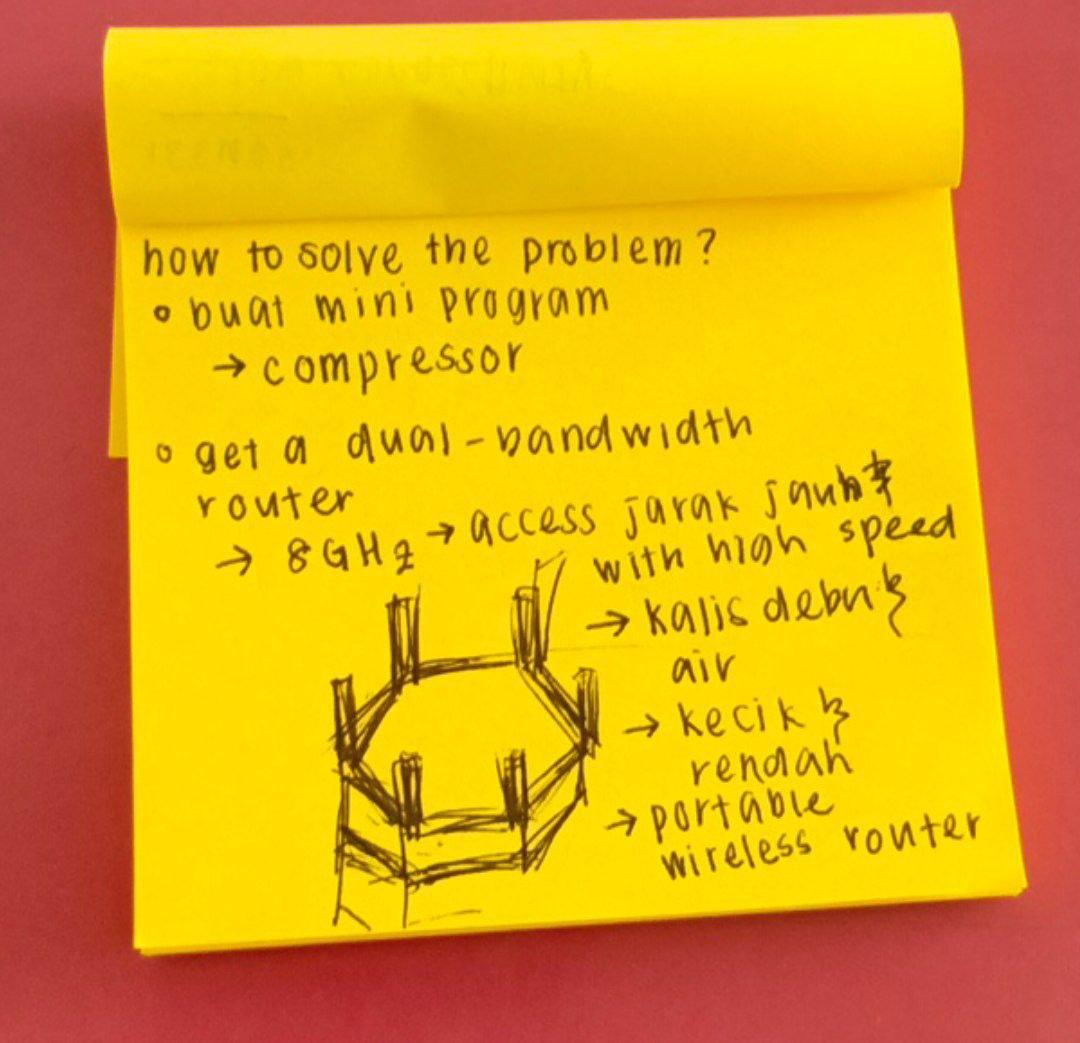 how to solve the problem?
• buat mini program
→ compressor
• get a dual-bandwidth
router
→ 8GHz → access jarak jauh &
with high speed
→ kalis debu &
air
→ kecik &
rendah
→ portable
wireless router